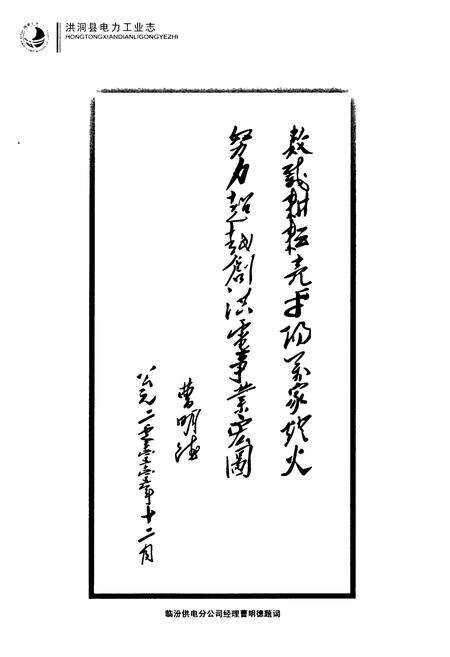 洪洞县电力工业志
HONGTONGXIANDIANLIGONGYEZHI
数載耕耘亮平阳万家灯火
努力超越創洪電事業宏圖
曹明德
公元二零零年十二月
临汾供电分公司经理曹明德题词